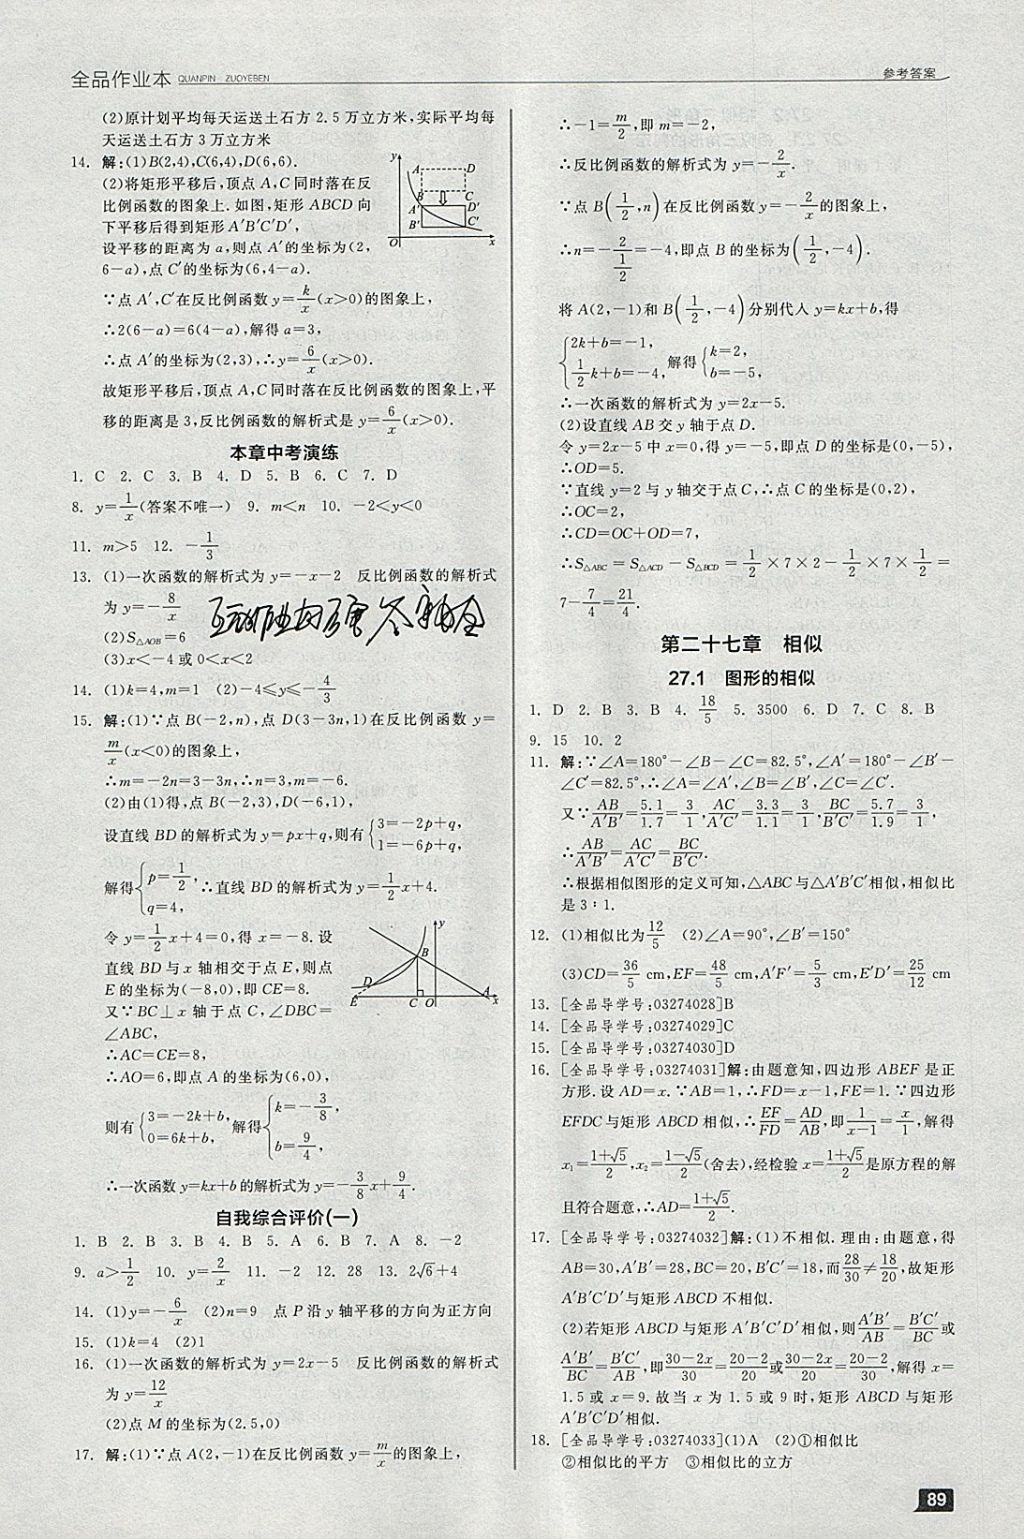 全品作业本 QUANPIN ZUOYEBEN
参考答案
(2)原计划平均每天运送土石方2.5万立方米,实际平均每
天运送土石方3万立方米
14. 解:(1)B(2,4),C(6,4),D(6,6).
(2)将矩形平移后,顶点A,C同时落在反
比例函数的图象上.如图,矩形ABCD向
下平移后得到矩形A′B′C′D′,
设平移的距离为a,则点A′的坐标为(2,
6-a),点C′的坐标为(6,4-a).
∵点A′,C′在反比例函数y=k/x(x>0)的图象上,
∴2(6-a)=6(4-a),解得a=3,
∴点A′的坐标为(2,3),∴y=6/x(x>0).
故矩形平移后,顶点A,C同时落在反比例函数的图象上,平
移的距离是3,反比例函数的解析式是y=6/x(x>0).
y A D B C A′ D′ B′ C′ O x
本章中考演练
1. C 2. C 3. B 4. D 5. B 6. C 7. D
8. y=1/x(答案不唯一) 9. m<n 10. -2<y<0
11. m>5 12. -1/3
13. (1)一次函数的解析式为y=-x-2 反比例函数的解析式
为y=-8/x
(2)S△AOB=6
(3)x<-4或0<x<2
14. (1)k=4,m=1 (2)-4≤y≤-4/3
15. 解:(1)∵点B(-2,n),点D(3-3n,1)在反比例函数y=
m/x(x<0)的图象上,
∴m=-2n=3-3n,∴n=3,m=-6.
(2)由(1)得,点B(-2,3),D(-6,1),
设直线BD的解析式为y=px+q,则有{3=-2p+q, 1=-6p+q,
解得{p=1/2, q=4, ∴直线BD的解析式为y=1/2x+4.
令y=1/2x+4=0,得x=-8.设
直线BD与x轴相交于点E,则点
E的坐标为(-8,0),即CE=8.
又∵BC⊥x轴于点C,∠DBC=
∠ABC,
∴AC=CE=8,
∴AO=6,即点A的坐标为(6,0),
则有{3=-2k+b, 0=6k+b, 解得{k=-3/8, b=9/4,
∴一次函数y=kx+b的解析式为y=-3/8x+9/4.
y B D E C O A x
自我综合评价(一)
1. B 2. B 3. B 4. B 5. A 6. B 7. A 8. -2
9. a>1/2 10. y=2/x 11. -2 12. 28 13. 2√6+4
14. (1)y=-6/x (2)n=9 点P沿y轴平移的方向为正方向
15. (1)k=4 (2)1
16. (1)一次函数的解析式为y=2x-5 反比例函数的解析式
为y=12/x
(2)点M的坐标为(2.5,0)
17. 解:(1)∵点A(2,-1)在反比例函数y=m/x的图象上,
∴-1=m/2,即m=-2,
∴反比例函数的解析式为y=-2/x.
∵点B(1/2,n)在反比例函数y=-2/x的图象上,
∴n=-2/(1/2)=-4,即点B的坐标为(1/2,-4).
将A(2,-1)和B(1/2,-4)分别代入y=kx+b,得
{2k+b=-1, 1/2k+b=-4, 解得{k=2, b=-5,
∴一次函数的解析式为y=2x-5.
(2)设直线AB交y轴于点D.
令y=2x-5中x=0,得y=-5,即点D的坐标是(0,-5),
∴OD=5.
∵直线y=2与y轴交于点C,∴点C的坐标是(0,2),
∴OC=2,
∴CD=OC+OD=7,
∴S△ABC=S△ACD-S△BCD=1/2×7×2-1/2×7×1/2=
7-7/4=21/4.
第二十七章 相似
27.1 图形的相似
1. D 2. B 3. B 4. 18/5 5. 3500 6. D 7. C 8. B
9. 15 10. 2
11. 解:∵∠A=180°-∠B-∠C=82.5°,∠A′=180°-∠B′-
∠C′=82.5°,∴∠A=∠A′,∠B=∠B′,∠C=∠C′.
又∵AB/A′B′=5.1/1.7=3/1,AC/A′C′=3.3/1.1=3/1,BC/B′C′=5.7/1.9=3/1,
∴AB/A′B′=AC/A′C′=BC/B′C′.
∴根据相似图形的定义可知,△ABC与△A′B′C′相似,相似比
是3∶1.
12. (1)相似比为12/5 (2)∠A=90°,∠B′=150°
(3)CD=36/5 cm,EF=48/5 cm,A′F′=5/3 cm,E′D′=25/12 cm
13. [全品导学号:03274028]B
14. [全品导学号:03274029]C
15. [全品导学号:03274030]D
16. [全品导学号:03274031]解:由题意知,四边形ABEF是正
方形.设AD=x.∵AB=1,∴FD=x-1,FE=1.∵四边形
EFDC与矩形ABCD相似,∴EF/FD=AD/AB,即1/(x-1)=x/1,解得
x₁=(1+√5)/2,x₂=(1-√5)/2(舍去),经检验x=(1+√5)/2是原方程的解
且符合题意,∴AD=(1+√5)/2.
17. [全品导学号:03274032]解:(1)不相似.理由:由题意,得
AB=30,A′B′=28,BC=20,B′C′=18,而28/30≠18/20,故矩形
A′B′C′D′与矩形ABCD不相似.
(2)若矩形ABCD与矩形A′B′C′D′相似,则A′B′/AB=B′C′/BC或
A′B′/BC=B′C′/AB,即(30-2x)/30=(20-2)/20或(30-2x)/20=(20-2)/30,解得x=
1.5或x=9.故当x为1.5或9时,矩形ABCD与矩形
A′B′C′D′相似.
18. [全品导学号:03274033](1)A (2)①相似比
②相似比的平方 ③相似比的立方
89